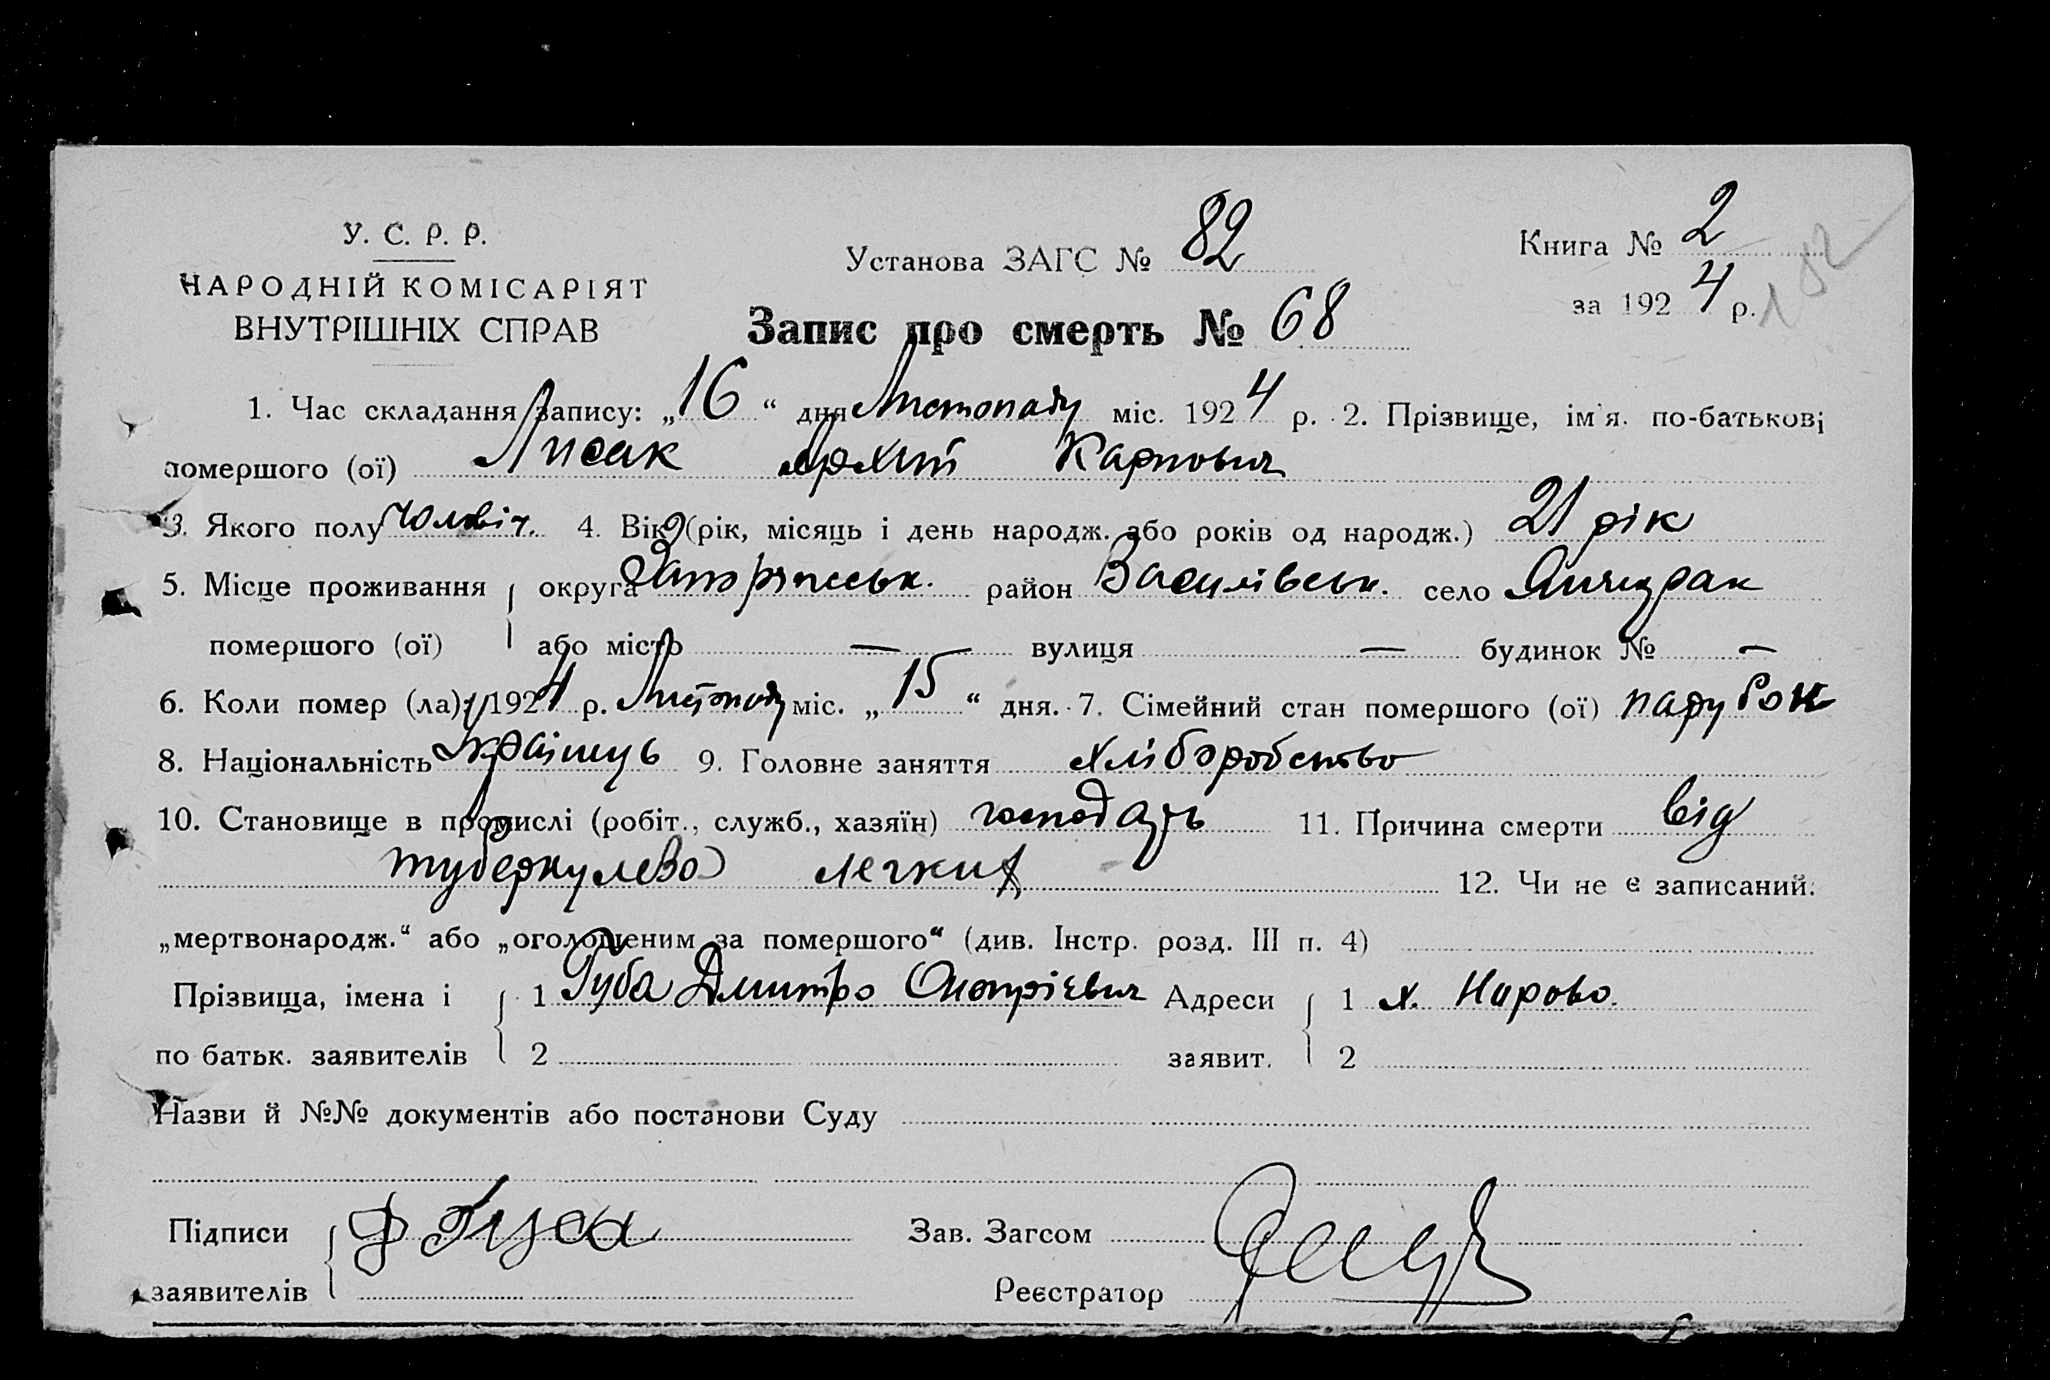 У. С. Р. Р.
НАРОДНІЙ КОМІСАРІЯТ
ВНУТРІШНІХ СПРАВ
Установа ЗАГС № 82
Книга № 2
за 192 4 р.
182
Запис про смерть № 68
1. Час складання запису: „ 16 “ дня Листопаду міс. 192 4 р. 2. Прізвище, ім'я. по-батькові
помершого (ої) Лисак Архип Карпович
3. Якого полу чоловіч. 4. Вік (рік, місяць і день народж. або років од народж.) 21 рік
5. Місце проживання округа Запоріжськ. район Василівськ. село Янчукрак
помершого (ої) або місто — вулиця — будинок № —
6. Коли помер (ла): 192 4 р. Листопаду міс. „ 15 “ дня. 7. Сімейний стан помершого (ої) парубок
8. Національність Українець 9. Головне заняття хліборобство
10. Становище в промислі (робіт., служб., хазяїн) господарь 11. Причина смерти від
туберкульоза легких 12. Чи не є записаний.
„мертвонародж.“ або „оголошеним за помершого“ (див. Інстр. розд. III п. 4)
Прізвища, імена і 1 Губа Дмитро Онопрієвич Адреси 1 х.
по батьк. заявителів 2 заявит. 2
Назви й №№ документів або постанови Суду
Підписи Д Губа Зав. Загсом
заявителів Реєстратор